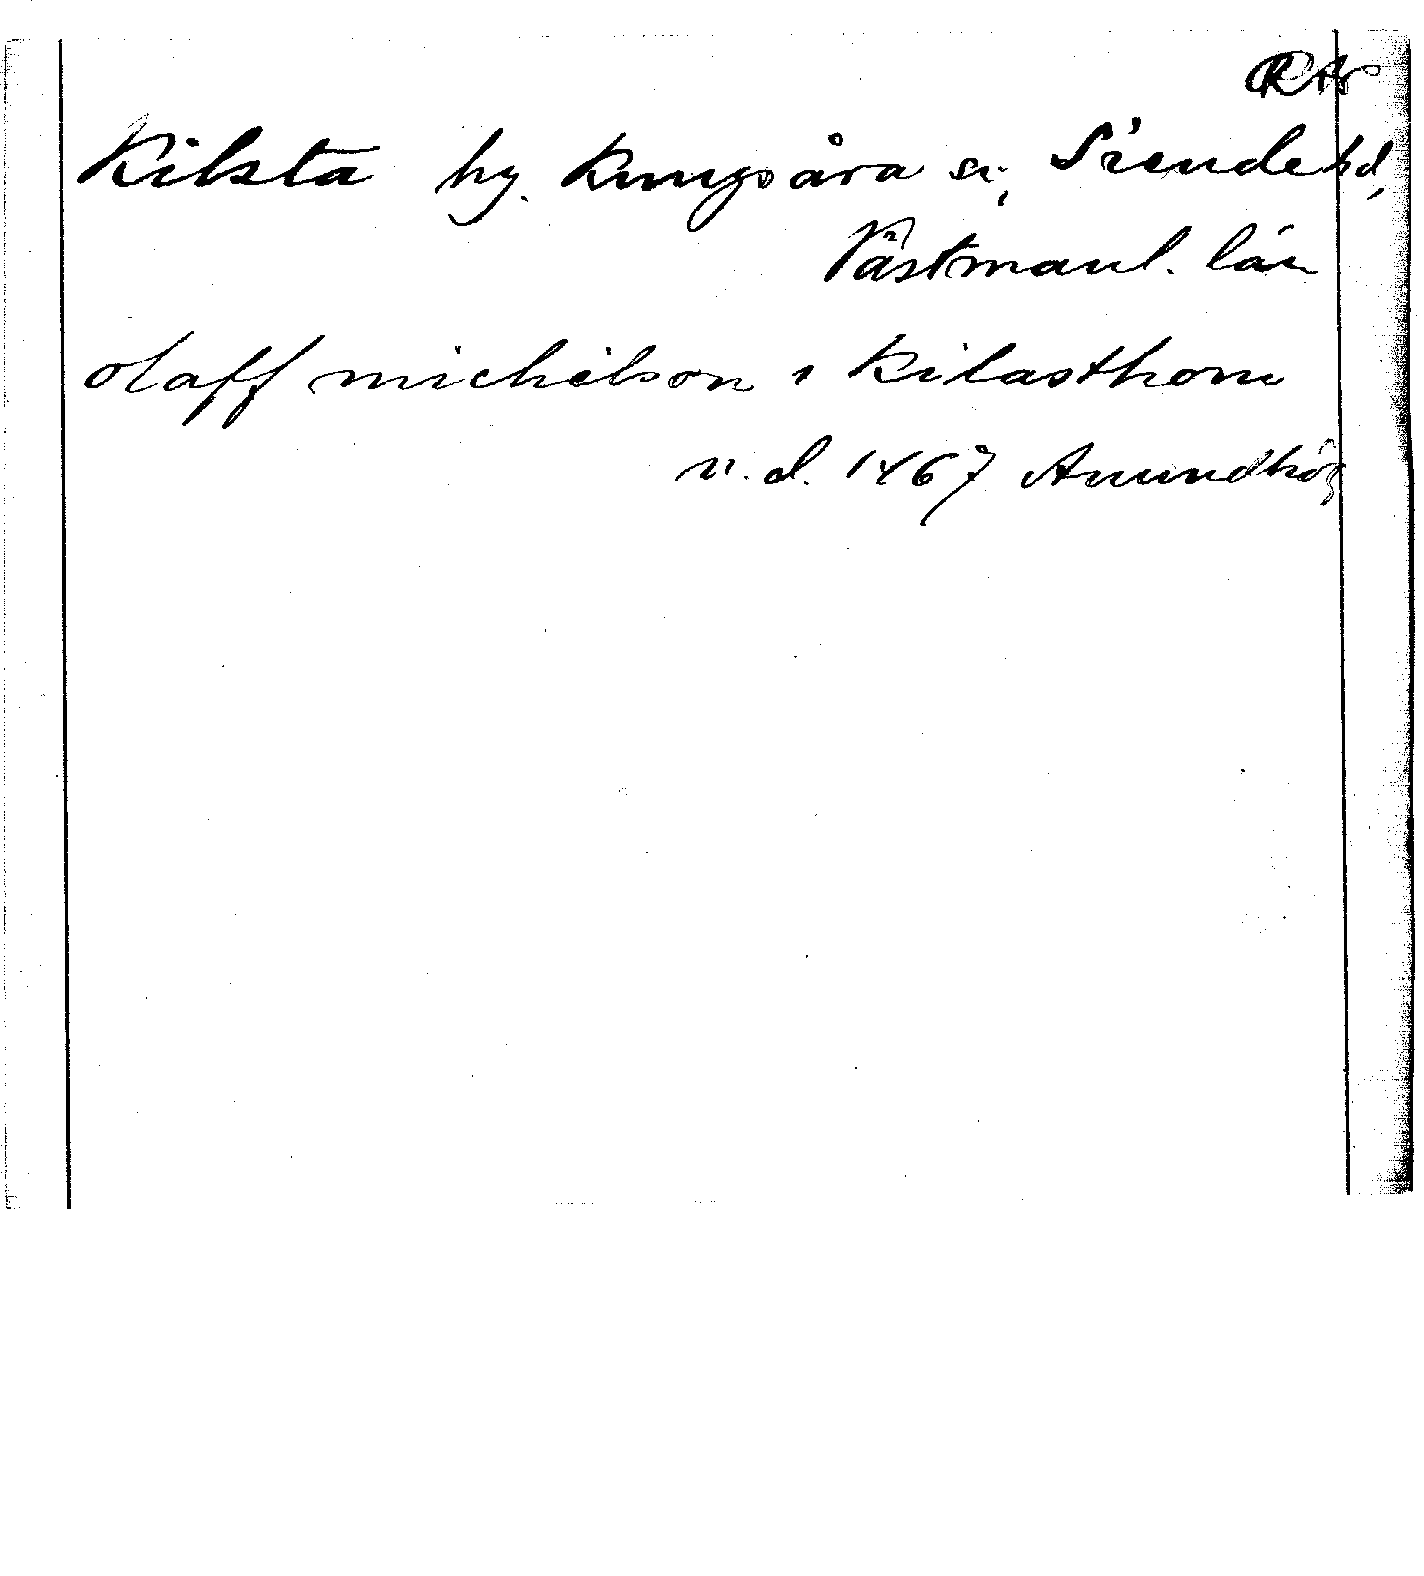 RA
Kilsta by. Kungsåra sn, Siende hd,
Västmanl. län
olaff michelson i Kilasthom
n.d. 1467 Anundhög